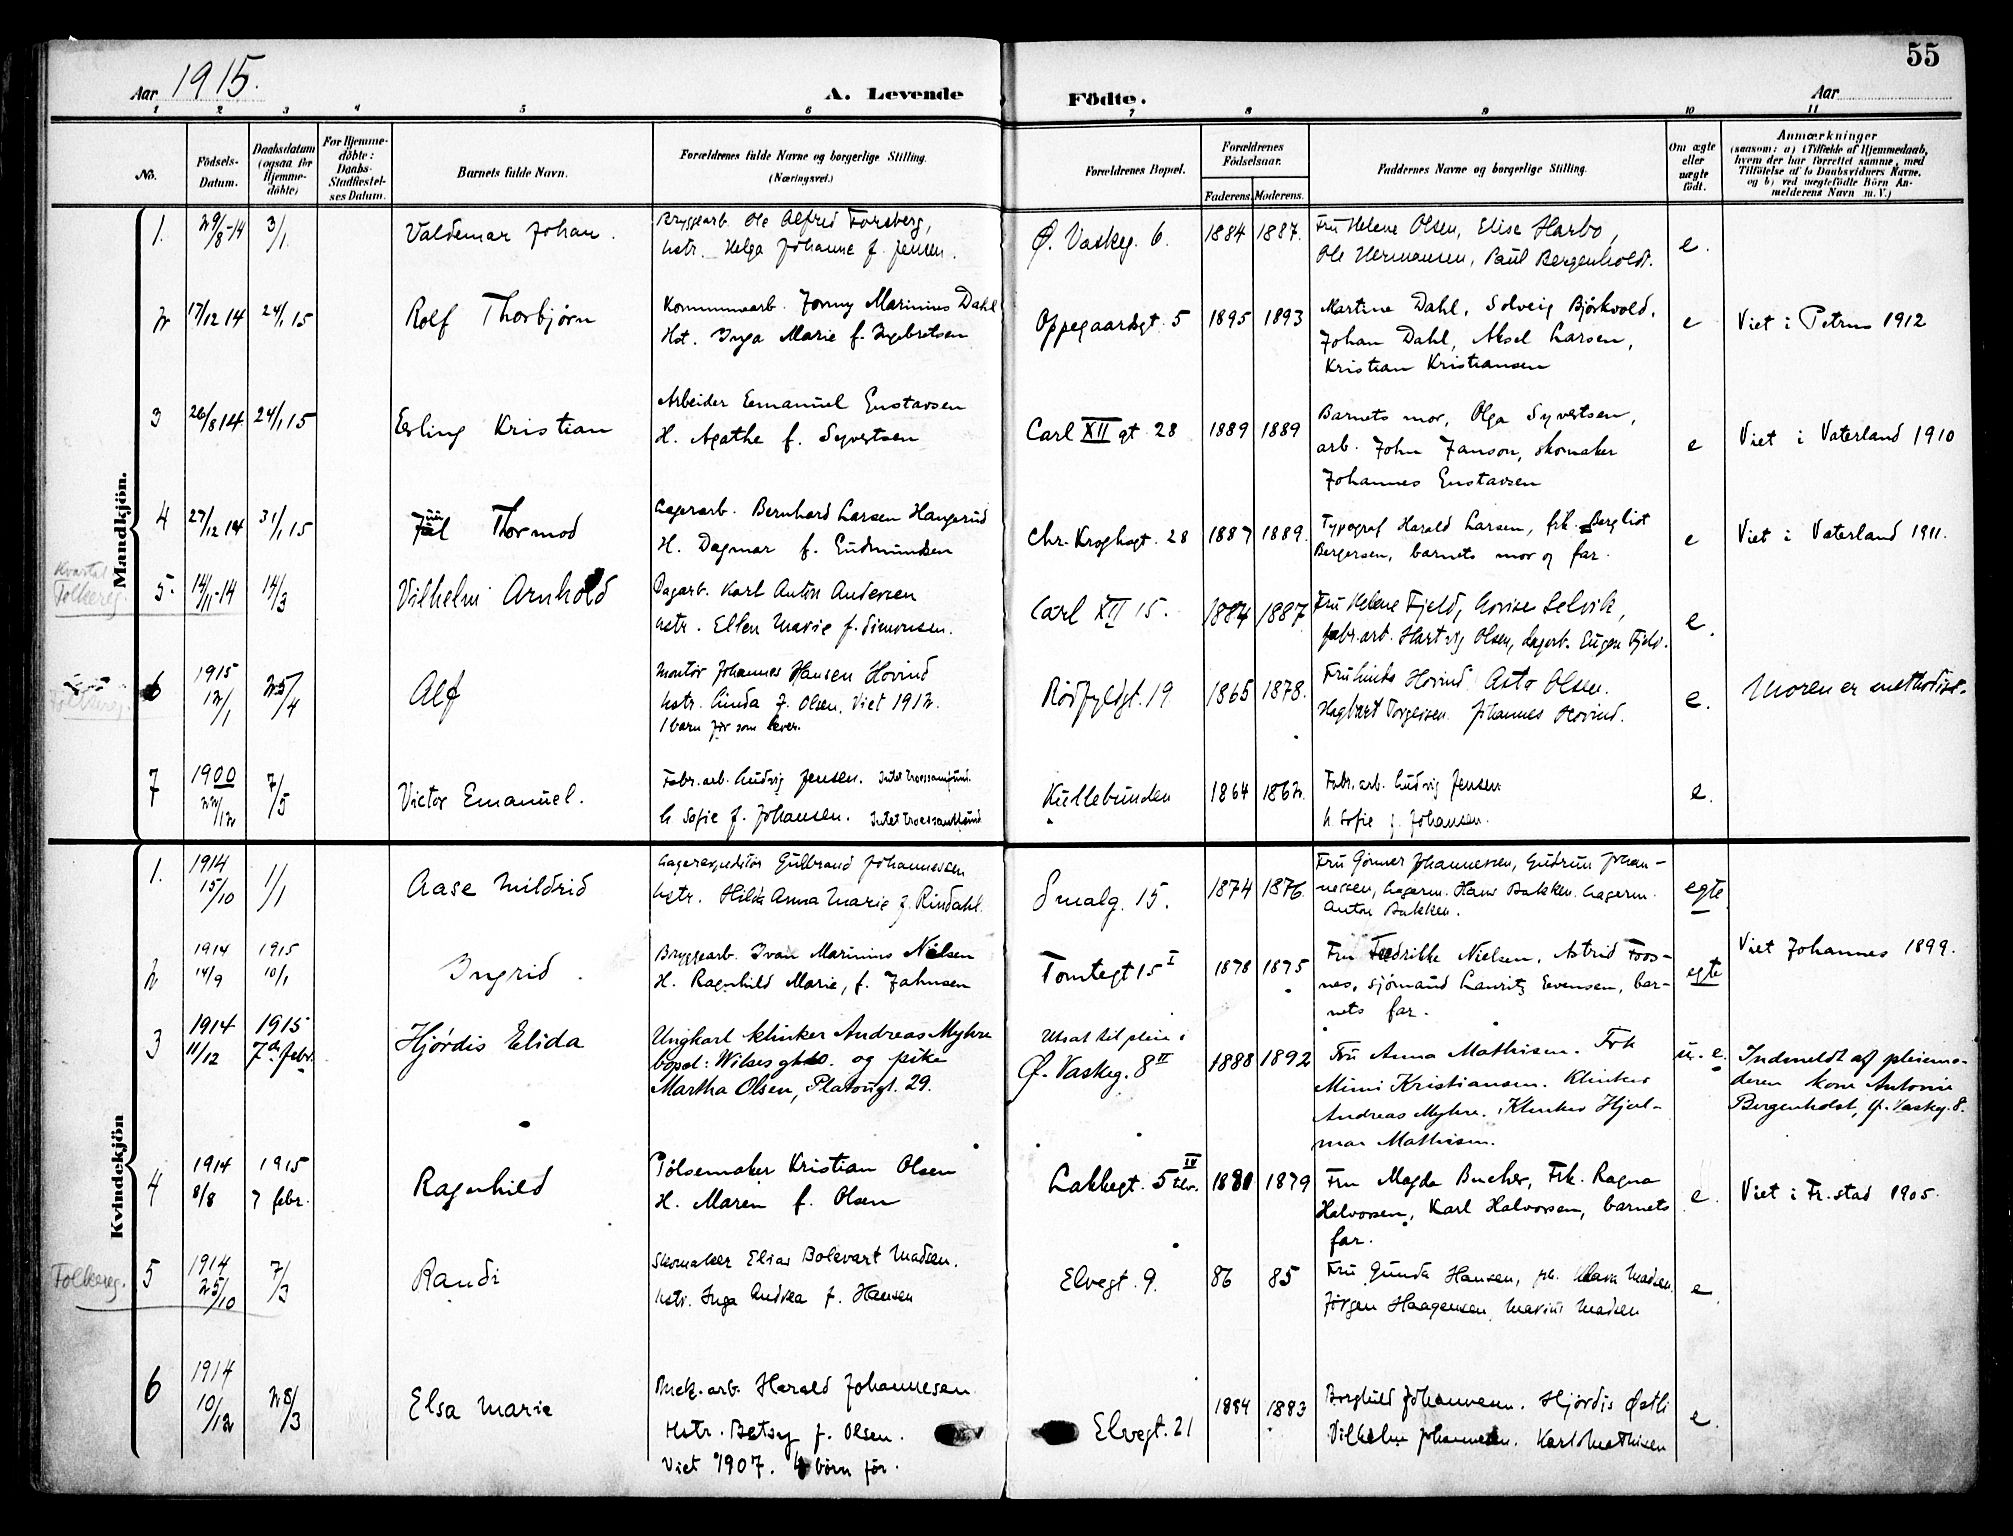 55
Aar 1915.
A. Levende Födte.
Aar
1 2 3 4 5 6 7 8 9 10 11
No.
Födsels-Datum.
Daabsdatum (ogsaa for Hjemme-döbte)
For Hjemme-döbte: Daabs-Stadfæstel-ses Datum.
Barnets fulde Navn.
Forældrenes fulde Navne og borgerlige Stilling. (Næringsvei.)
Forældrenes Bopæl.
Forældrenes Födselsaar.
Faderens. Moderens.
Faddernes Navne og borgerlige Stilling.
Om ægte eller uægte födt.
Anmærkninger
(saasom: a) i Tilfælde af Hjemmedaab,
hvem der har forrettet samme, med
Tilföielse af to Daabsvidners Navne.
og b) ved uægtefödte Börn An-
melderens Navn m. V.)
Mandkjön.
1. 29/8-14 3/1 Valdemar Johan.
Bryggearb. Ole Alfred Forsberg,
hstr. Helga Johanne f. Jensen.
Ø. Vaskeg. 6. 1884 1887.
Fru Helene Olsen, Elise Harbo,
Ole Hermansen, Paul Bergenholdt.
e.
2 17/12 14 24/1 15 Rolf Thorbjørn
Kommunearb. Jonny Marinius Dahl
Hst. Inga Marie f. Ingebretsen
Oppegaardsgt. 5 1895 1893
Martine Dahl, Solveig Bjørkvold,
Johan Dahl, Aksel Larsen,
Kristian Kristiansen
e Viet i Petrus 1912
3 26/8 14 24/1 15 Erling Kristian
Arbeider Emanuel Gustavsen
H. Agathe f. Syvertsen
Carl XII gt. 28 1889 1889
Barnets mor, Olga Syvertsen,
arb. John Janson, skomaker
Johannes Gustavsen
e Viet i Vaterland 1910
4 27/12 14 31/1 15 Juul Thormod
Lagerarb. Bernhard Larsen Haugerud
H. Dagmar f. Gudmundsen
Chr. Kroghsgt. 28 1887 1889.
Typograf Harald Larsen, frk. Bergliot
Bergersen, barnets mor og far.
e Viet i Vaterland 1911.
Kvartal
Folkereg.
5. 14/11-14 14/3 Vilhelm Arnhold
Dagarb. Karl Anton Andersen
hstr. Ellen Marie f. Simonsen.
Carl XII 15. 1884 1887
Fru Helene Fjeld, Lovise Selvik,
fabr.arb. Hartvig Olsen, Lagerb. Eugen Fjeld.
e.
Folkereg.
6 1915 12/1 25/4 Alf
Montør Johannes Hansen Hovind
hstr. Linda f. Olsen. Viet 1912.
1 barn før som lever.
Rødfyldgt. 19 1865 1878.
Fru Hovind Asta Olsen.
Hagbart Torgersen. Johannes Hovind.
e. Moren er methodist.
7 1900 22/12 7/5 Victor Emanuel.
Fabr.arb. Ludvig Jensen. Intet troessamfund.
h Sofie f. Johansen. Intet troessamfund
Kullebunden 1864 1862.
Fabr.arb. Ludvig Jensen
h Sofie f. Johansen.
e.
Kvindekjön
1. 1914 15/10 1/1 Aase Mildrid
Lagerexpeditør Gulbrand Johannessen
hstr. Hilda Anna Marie f. Rindahl.
Smalg. 15. 1874 1876.
Fru Johannessen, Gudrun Johan-
nessen, Lagerm. Hans Bakken. Lagerm.
Anton Bakken.
egte
2 1914 14/9 1915 10/1 Ingrid.
Bryggearb. Ivan Marinius Nilsen
H. Ragnhild Marie, f. Jahnsen
Tomtegt 15 I 1878 1875
Fru Fredrikke Nielsen, Astrid Foos-
nes, sjömand Lauritz Evensen, bar-
nets far.
egte Viet Johannes 1899.
3 1914 11/12 1915 7de febr. Hjørdis Elida
Ungkarl klinker Andreas Myhre
bopæl: Wilses gt 10. og pike
Martha Olsen, Platousgt. 29.
Utsat til pleie i
Ø. Vaskeg. 8 II 1888 1892
Fru Anna Mathisen. Frk
Mimi Kristiansen. Klinker
Andreas Myhre. Klinker Hjal-
mar Mathisen.
u. e. Indmeldt af pleiemo-
deren kone Antonie
Bergenholdt, Ø. Vaskeg. 8.
4 1914 8/8 1915 7 febr. Ragnhild
Pølsemaker Kristian Olsen
H. Maren f. Olsen
Lakkegt. 5 IV 1881 1879
Fru Magda Bucher, Frk. Ragna
Halvorsen, Karl Halvorsen, barnets
far.
e. Viet i Fr.stad 1905.
Folkereg.
5 1914 25/10 7/3 Randi
Skomaker Elias Bolevart Madsen.
hstr. Inga Andrea f. Hansen
Elvegt. 9. 86 85
Fru Gunda Hansen, frk. Klara Madsen
Jörgen Haagensen Marius Madsen
e.
6 1914 10/12 28/3 Elsa Marie
Mek. arb. Harald Johannesen.
Hstr. Betsy f. Olsen.
Viet 1907. 4 børn før.
Elvegt. 21 1884 1883
Borghild Johannesen. Hjördis Østli
Vilhelm Johannesen. Karl Mathisen
e.